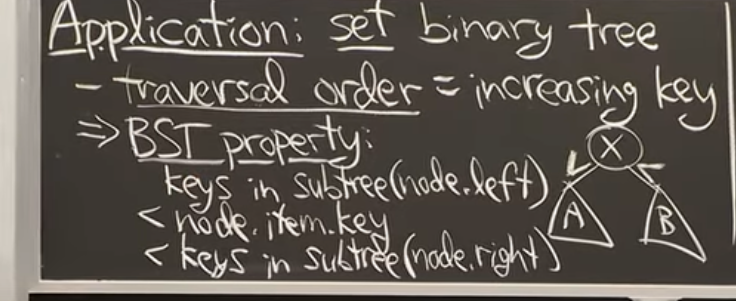 Application: set binary tree
- traversal order = increasing key
⇒ BST property:
keys in subtree(node.left)
< node.item.key
< keys in subtree(node.right)
X
A
B